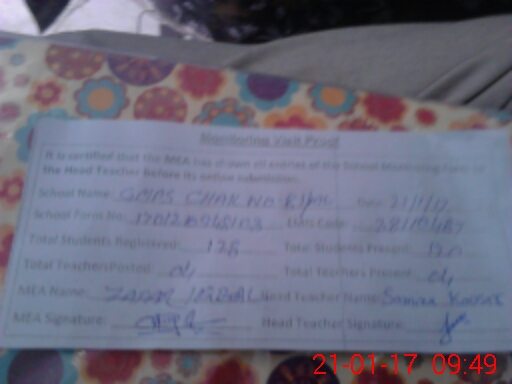 Monitoring Visit Proof
It is certified that the MEA has shown all entries of the School Monitoring Form to
the Head Teacher before its online submission.
School Name: GMPS CHAK NO Date: 21/1/17
School Form No: EMIS Code:
Total Students Registered: 128 Total Students Present: 120
Total Teachers Posted: 04 Total Teachers Present: 04
MEA Name: ZAFAR IQBAL Head Teacher Name: Samina Kousar
MEA Signature: Head Teacher Signature
21-01-17 09:49